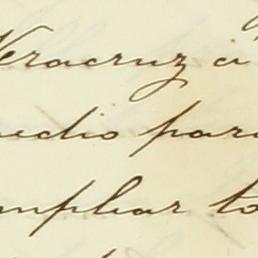 Veracruz á
medio para
ampliar to